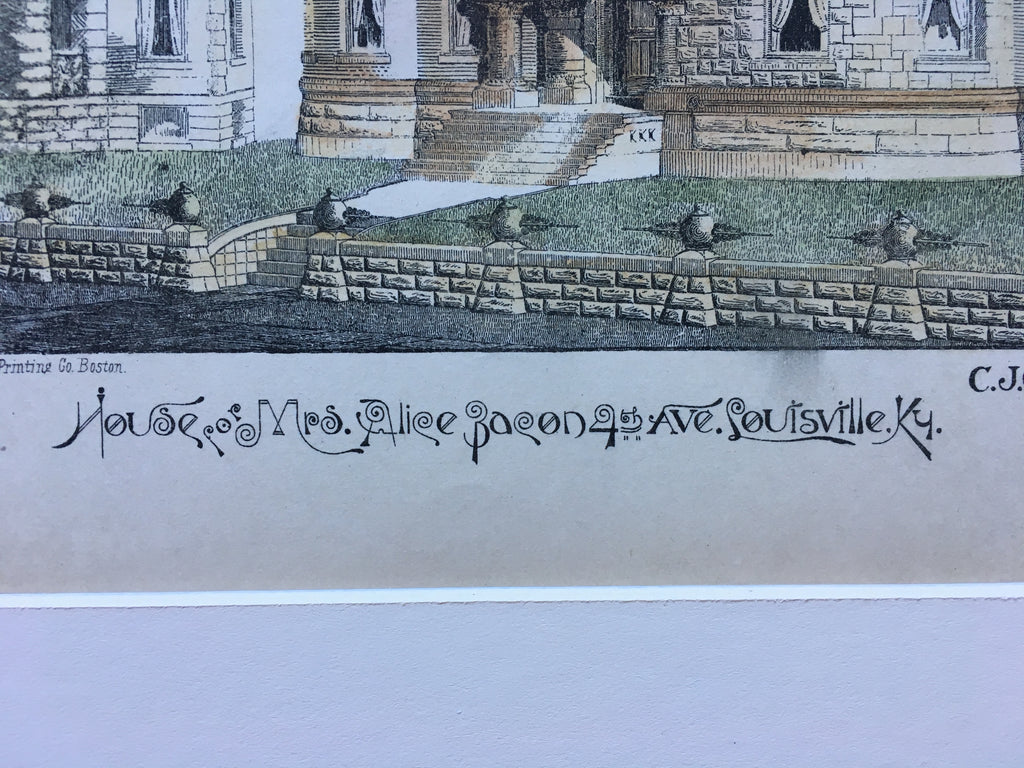 KKK
Printing Co. Boston.
C.J.
House of Mrs. Alice Bacon 4th Ave. Louisville. Ky.